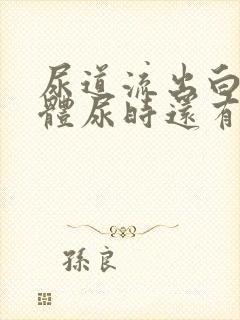 尿道流出白
體尿時還有
孫良